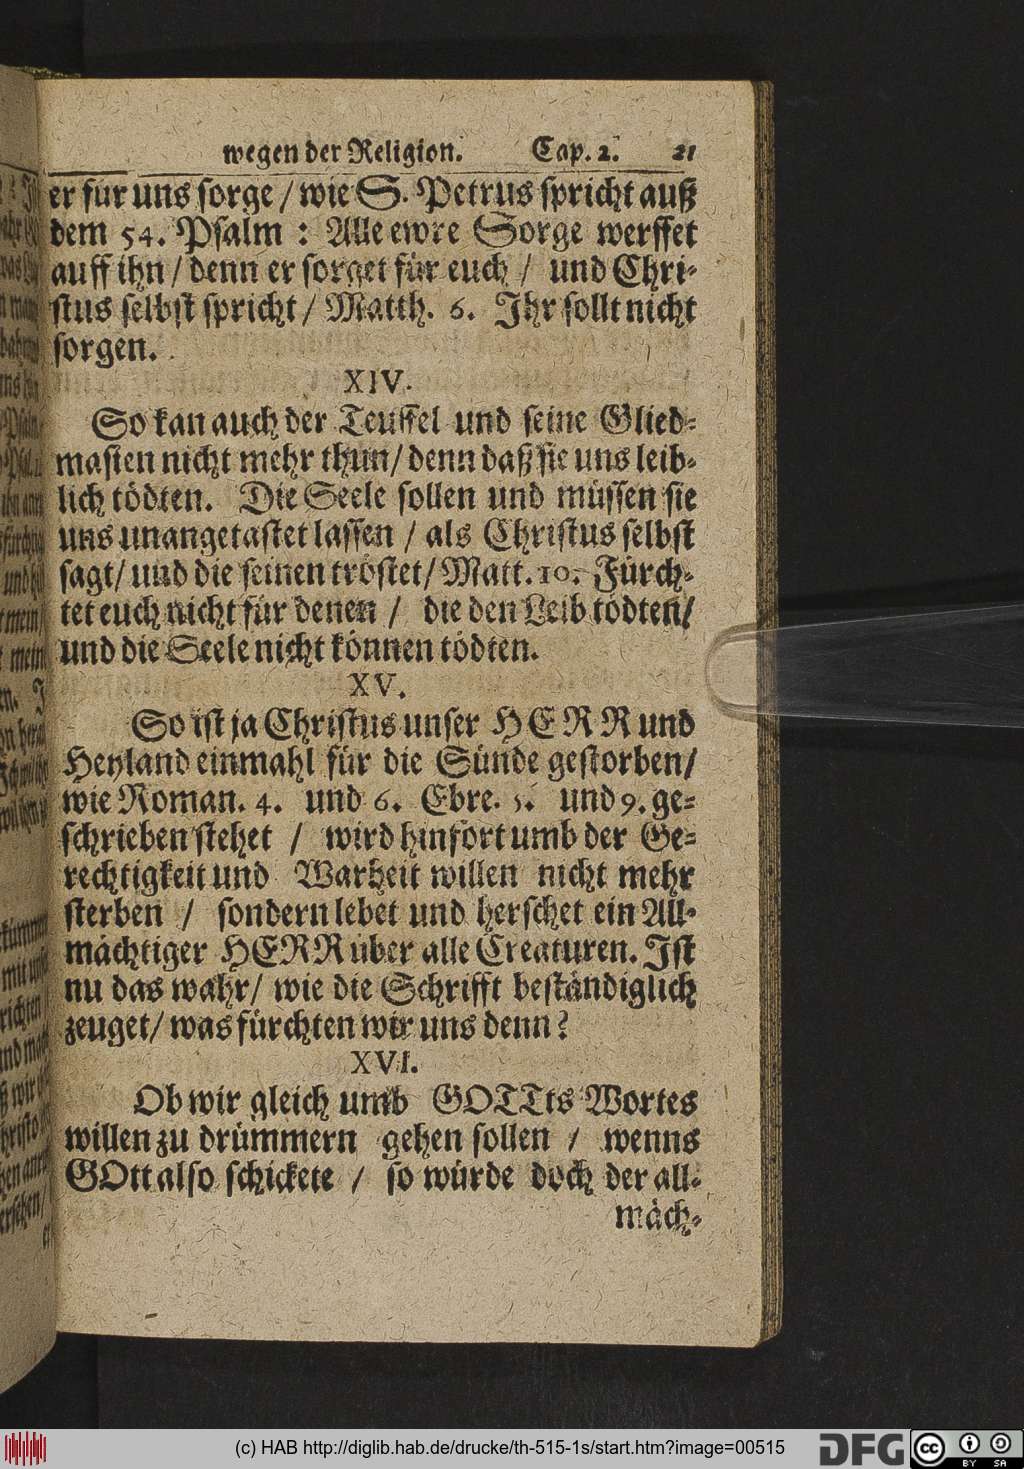 wegen der Religion. Cap. 2. 21
er für uns sorge / wie S. Petrus spricht auß
dem 54. Psalm : Alle ewre Sorge werffet
auff ihn / denn er sorget für euch / und Chri-
stus selbst spricht / Matth. 6. Ihr sollt nicht
sorgen.
XIV.
So kan auch der Teuffel und seine Glied-
massen nicht mehr thun / denn daß sie uns leib-
lich tödten. Die Seele sollen und müssen sie
uns unangetastet lassen / als Christus selbst
sagt / und die seinen tröstet / Matt. 10. Fürch-
tet euch nicht für denen / die den Leib tödten /
und die Seele nicht können tödten.
XV.
So ist ja Christus unser HERR und
Heyland einmahl für die Sünde gestorben /
wie Roman. 4. und 6. Ebre. 5. und 9. ge-
schrieben stehet / wird hinfort umb der Ge-
rechtigkeit und Warheit willen nicht mehr
sterben / sondern lebet und herschet ein All-
mächtiger HERR über alle Creaturen. Ist
nu das wahr / wie die Schrifft beständiglich
zeuget / was fürchten wir uns denn?
XVI.
Ob wir gleich umb GOTTes Wortes
willen zu drümmern gehen sollen / wenns
GOtt also schickete / so würde doch der all-
mäch-
(c) HAB http://diglib.hab.de/drucke/th-515-1s/start.htm?image=00515
DFG
cc BY SA